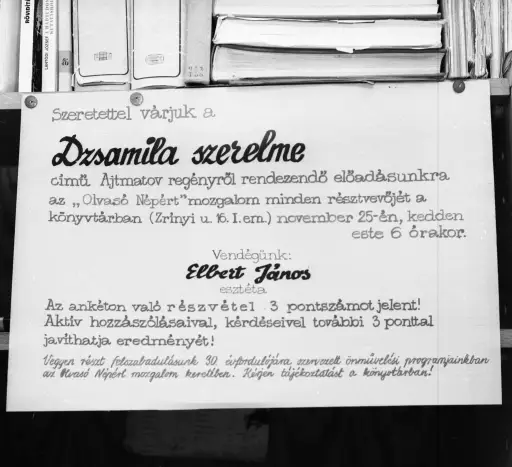 RÖVIDÍTÉ
LENGYEL JÓZSEF
Szeretettel várjuk a
Dzsamila szerelme
című Ajtmatov regényről rendezendő előadásunkra
az „Olvasó Népért” mozgalom minden résztvevőjét a
könyvtárban (Zrínyi u. 16. I. em.) november 25-én, kedden
este 6 órakor.
Vendégünk:
Elbert János
esztéta
Az ankéton való részvétel 3 pontszámot jelent!
Aktív hozzászólásaival, kérdéseivel további 3 ponttal
javíthatja eredményét!
Vegyen részt felszabadulásunk 30. évfordulójára szervezett önművelési programjainkban
az Olvasó Népért mozgalom keretében. Kérjen tájékoztatást a könyvtárban!